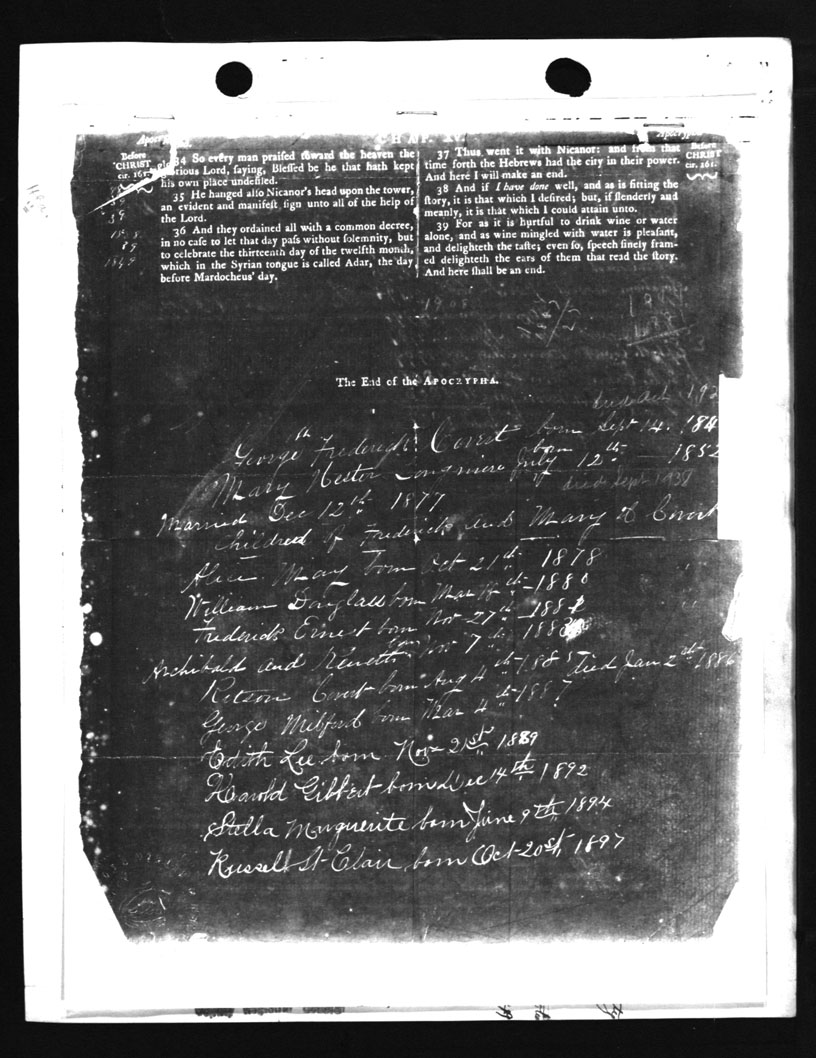 Apocrypha.
CHAP. XV.
Apocrypha
Before CHRIST cir. 161.
34 So every man praised toward the heaven the
glorious Lord, saying, Blessed be he that hath kept
his own place undefiled.
35 He hanged also Nicanor's head upon the tower,
an evident and manifest sign unto all of the help of
the Lord.
36 And they ordained all with a common decree,
in no case to let that day pass without solemnity, but
to celebrate the thirteenth day of the twelfth month,
which in the Syrian tongue is called Adar, the day
before Mardocheus' day.
37 Thus went it with Nicanor: and from that
time forth the Hebrews had the city in their power.
And here I will make an end.
38 And if I have done well, and as is fitting the
story, it is that which I desired; but, if slenderly and
meanly, it is that which I could attain unto.
39 For as it is hurtful to drink wine or water
alone, and as wine mingled with water is pleasant,
and delighteth the taste; even so, speech finely fram-
ed delighteth the ears of them that read the story.
And here shall be an end.
Before CHRIST cir. 161.
1908
The End of the APOCRYPHA.
died Oct 192
George Frederick Covert born Sept 14th 184
Mary Hester Longmire born July 12th 1852
died Sept 1937
Married Dec 12th 1877
Children of Frederick and Mary H Covert
Alice May born Oct 21th 1878
William Douglass born Mar 14th 1880
Frederick Ernest born Nov 27th 188
Archibald and Kenneth born Nov 7th 188
Retson Covert born Aug 4th 1885 died Jan 2nd 1886
George Milford born Mar 4th 1887
Edith Lee born Nov 21st 1889
Harold Gilbert born Dec 14th 1892
Stella Marguerite born June 9th, 1894
Russell St Clair born Oct 20st, 1897